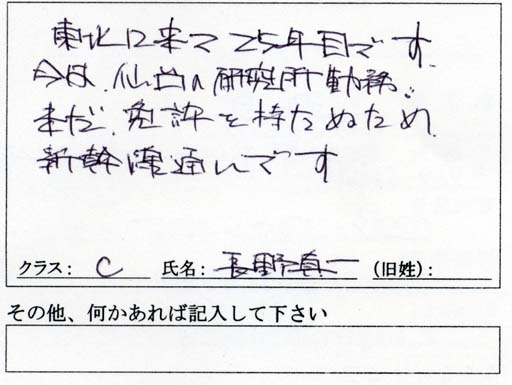 東北に来て25年目です.
今は、仙台の研究所勤務。
まだ、免許を持たぬため、
新幹線通いです
クラス: C 氏名: 長野真一 (旧姓):
その他、何かあれば記入して下さい